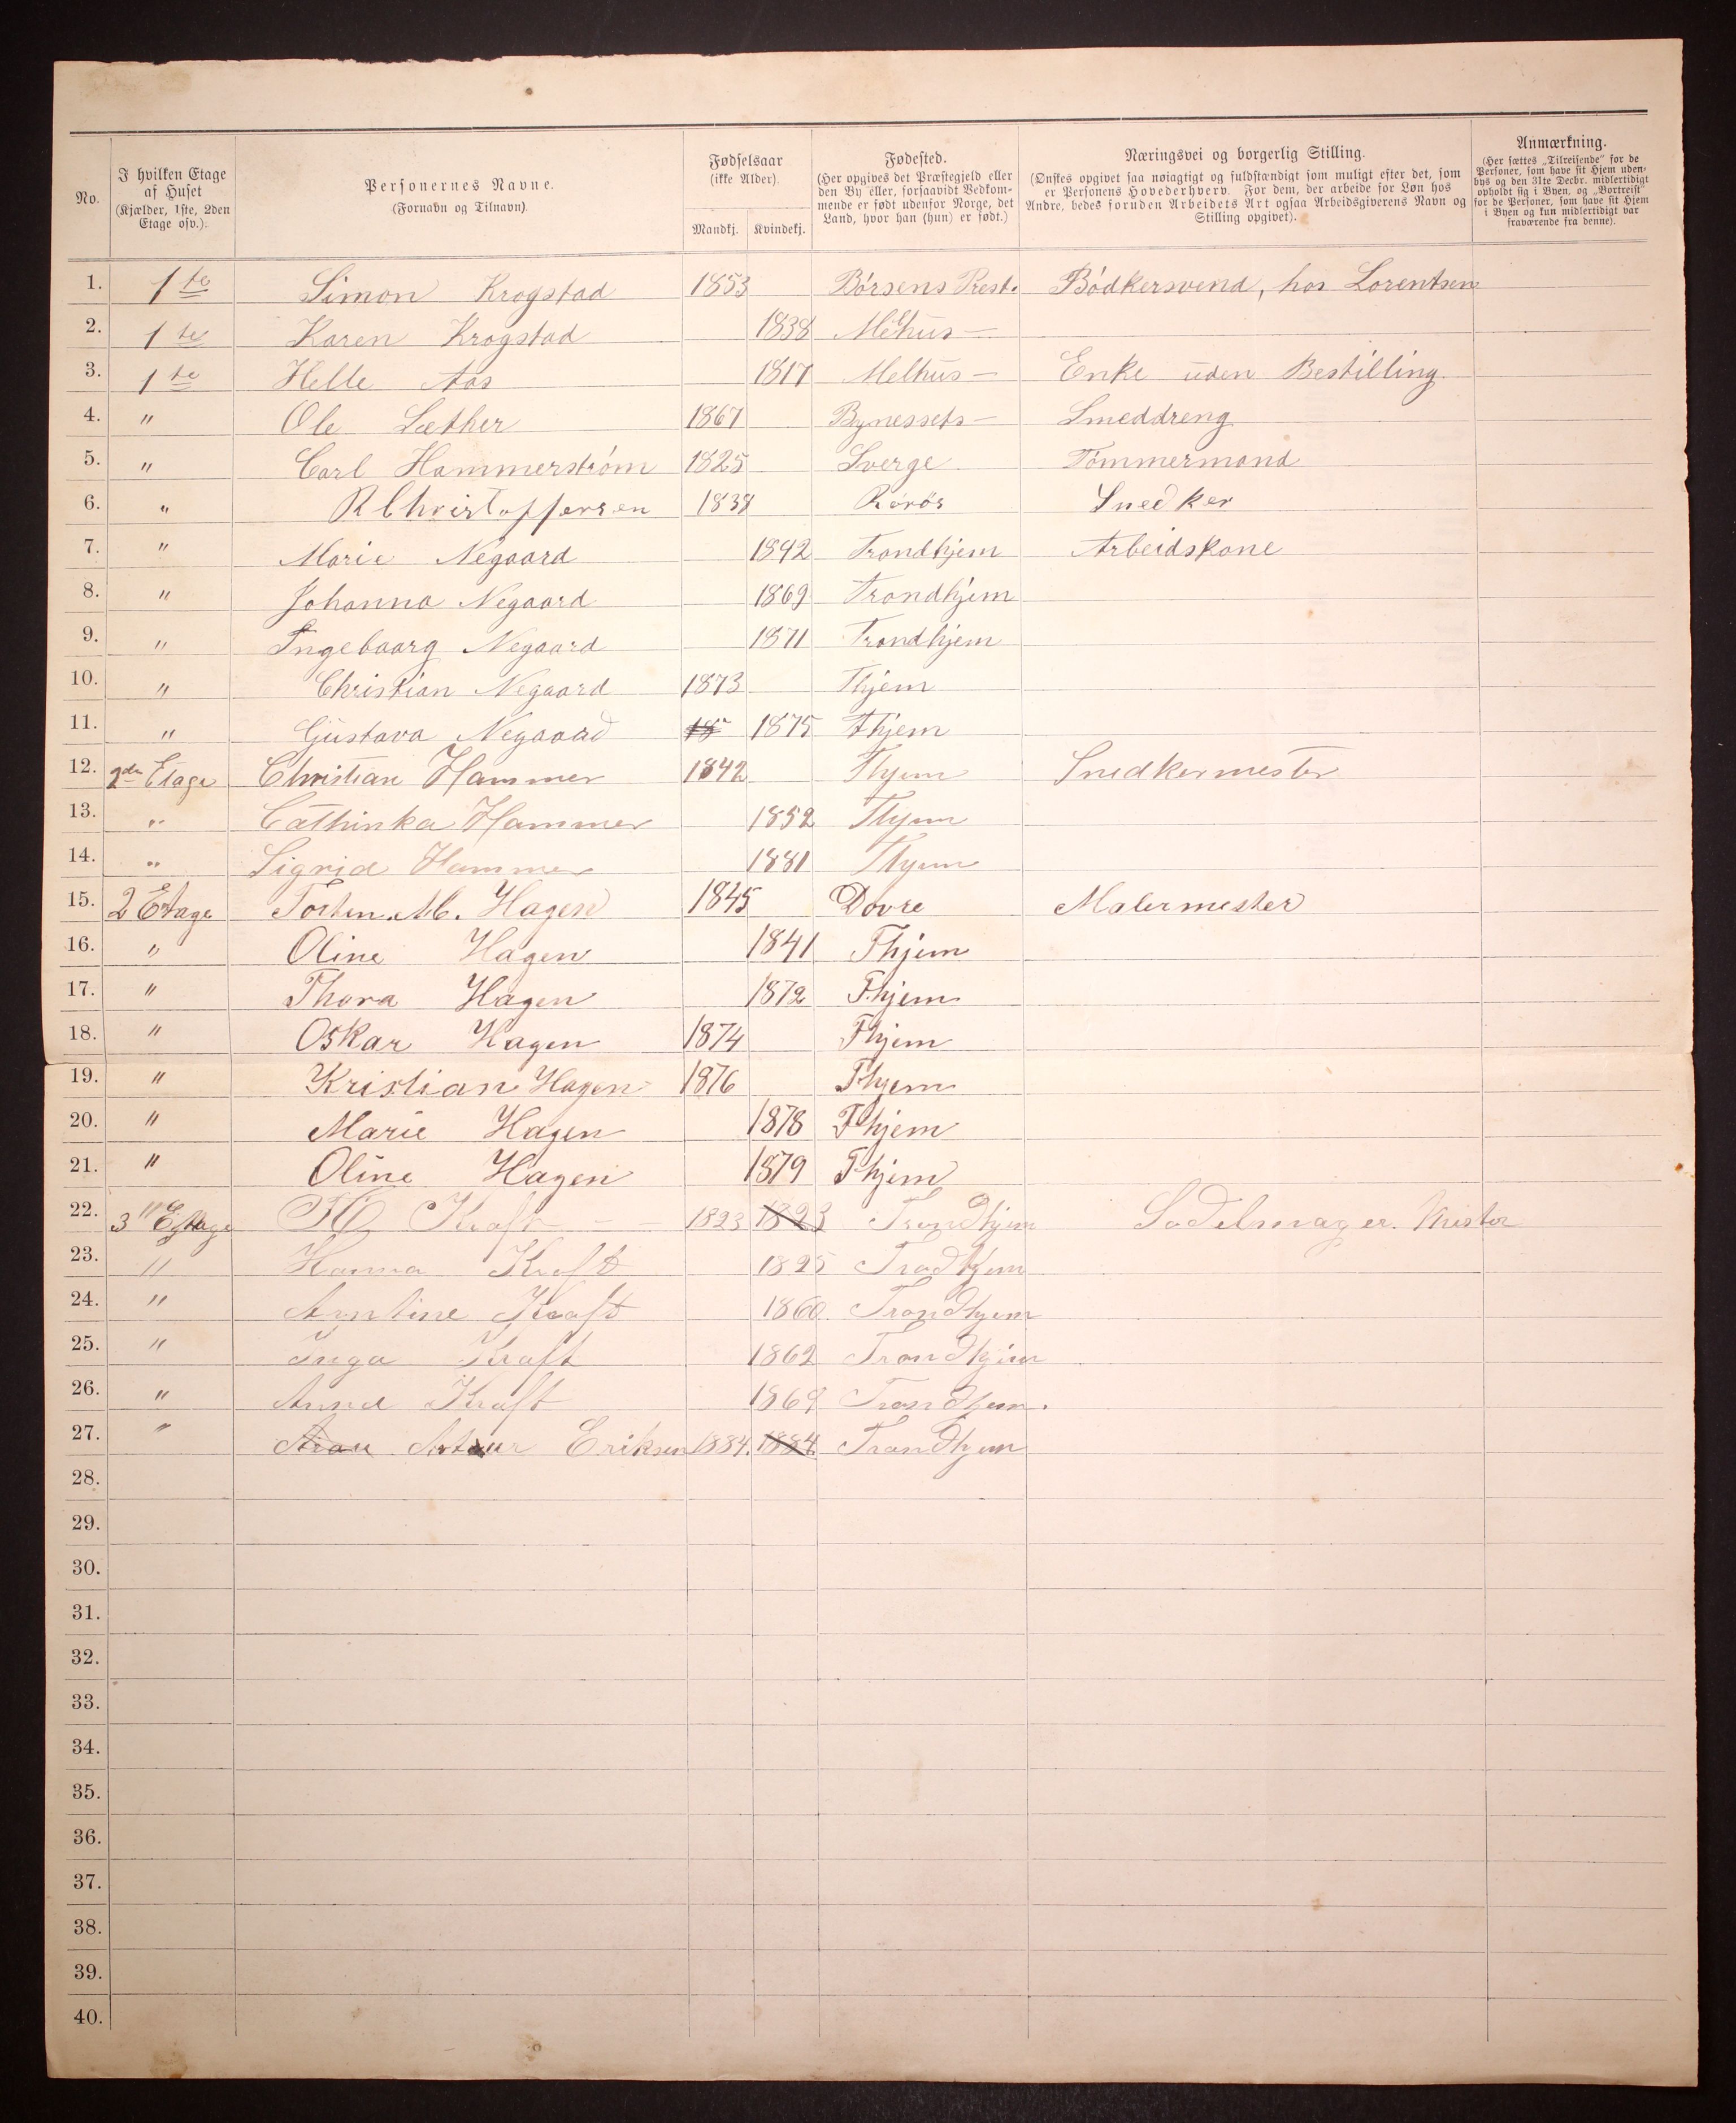 No.
I hvilken Etage af Huset (Kjælder, 1ste, 2den Etage osv.).
Personernes Navne. (Fornavn og Tilnavn).
Fødselsaar (ikke Alder).
Mandkj. Kvindekj.
Fødested. (Her opgives det Præstegjeld eller den By eller, forsaavidt Vedkommende er født udenfor Norge, det Land, hvor han (hun) er født.)
Næringsvei og borgerlig Stilling. (Ønskes opgivet saa nøiagtigt og fuldstændigt som muligt efter det, som er Personens Hovederhverv. For dem, der arbeide for Løn hos Andre, bedes foruden Arbeidets Art ogsaa Arbeidsgiverens Navn og Stilling opgivet).
Anmærkning. (Her sættes „Tilreisende" for de Personer, som have sit Hjem udenbys og den 31te Decbr. midlertidigt opholdt sig i Byen, og „Bortreist" for de Personer, som have sit Hjem i Byen og kun midlertidigt var fraværende fra denne).
1. 1te Simon Krogstad 1853 Börsens Prest. Bödkersvend, hos Lorentsen
2. 1te Karen Krogstad 1838 Melhus —
3. 1te Helle Aas 1817 Melhus — Enke uden Bestilling
4. " Ole Læther 1867 Bynessets — Smeddreng
5. " Carl Hammerström 1825 Sverge Tömmermand
6. " R Christoffersen 1838 Rörös Snedker
7. " Marie Negaard 1842 Trondhjem Arbeidskone
8. " Johanna Negaard 1869 Trondhjem
9. " Ingebaarg Negaard 1871 Trondhjem
10. " Christian Negaard 1873 Thjem
11. " Gustava Negaard 18 1875 Thjem
12. 2den Etage Christian Hammer 1842 Thjem Snedkermester
13. " Cathinka Hammer 1852 Thjem
14. " Sigrid Hammer 1881 Thjem
15. 2 Etage Torsten. M. Hagen 1845 Dovre Malermester
16. " Oline Hagen 1841 Thjem
17. " Thora Hagen 1872 Thjem
18. " Oskar Hagen 1874 Thjem
19. " Kristian Hagen 1876 Thjem
20. " Marie Hagen 1878 Thjem
21. " Oline Hagen 1879 Thjem
22. 3" Etage Kraft — 1823 1823 Trondhjem Sadelmager. Mester
23. " Hanna Kraft 1825 Tradhjem
24. " Arntine Kraft 1860 Trondhjem
25. " Inga Kraft 1862 Trondhjem
26. " Anna Kraft 1869 Trondhjem.
27. " Artur Eriksen 1884. 1884. Trondhjem
28.
29.
30.
31.
32.
33.
34.
35.
36.
37.
38.
39.
40.